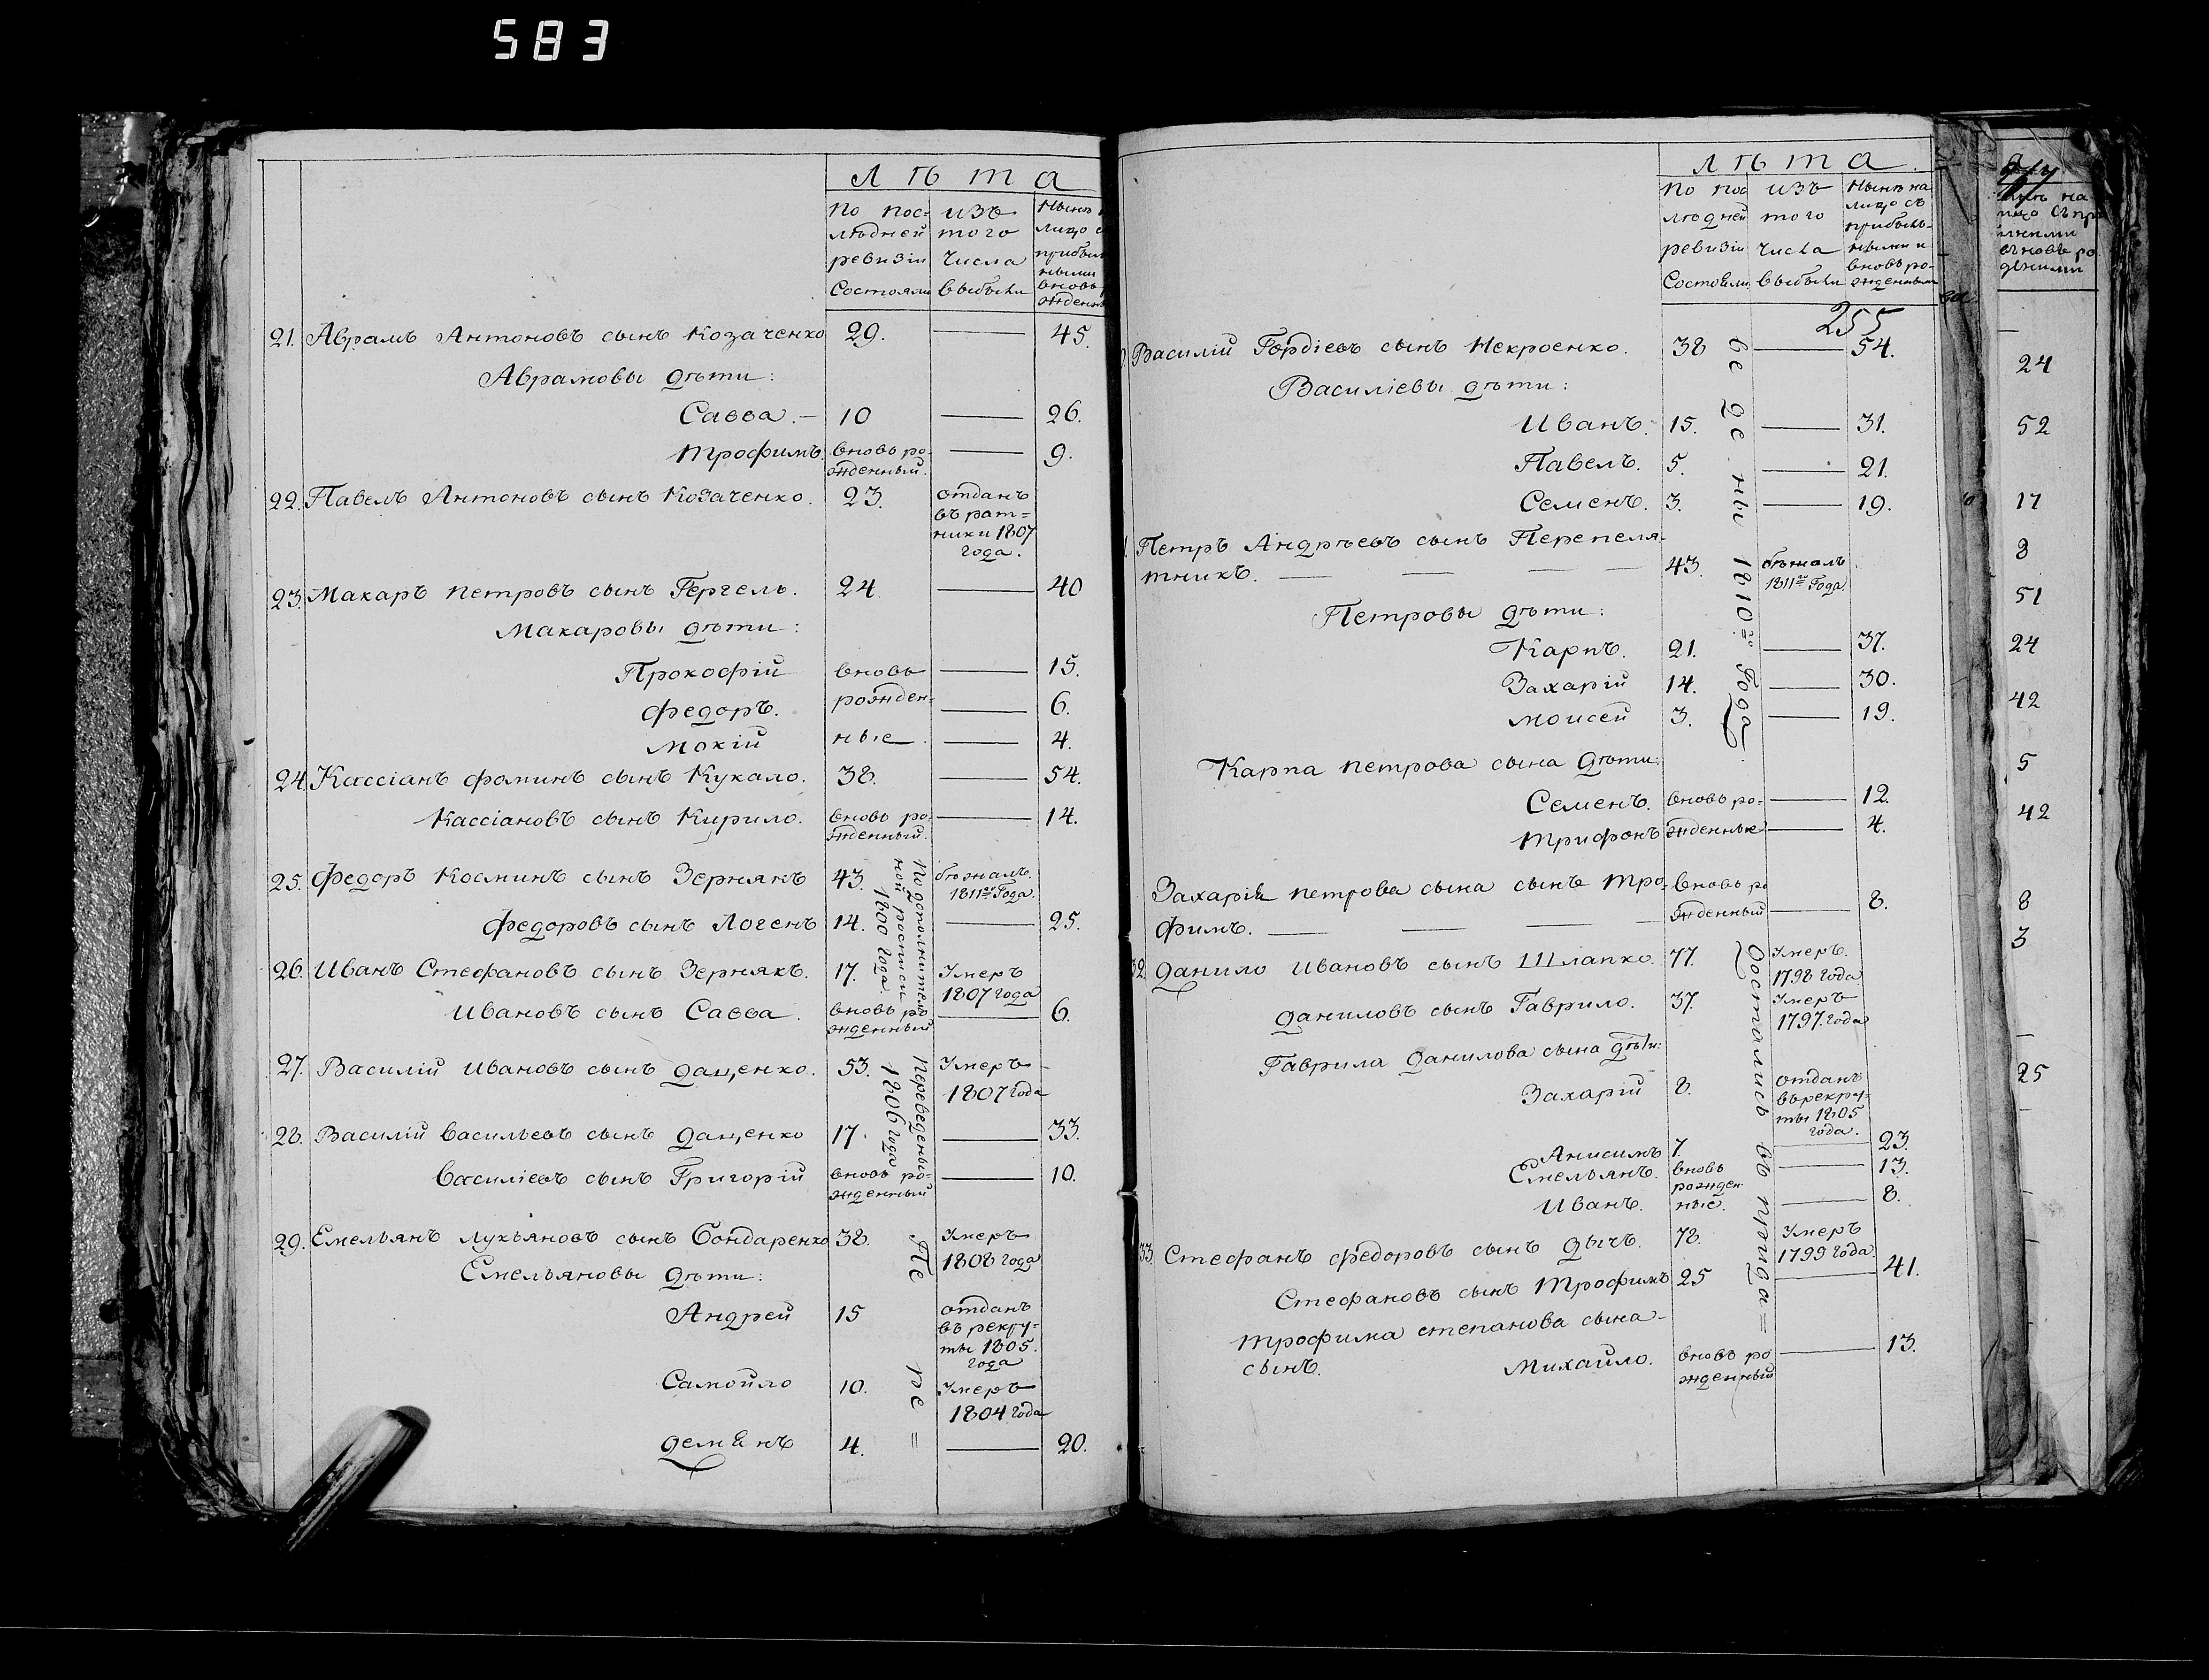 583
Лѣта
По пос= лѣдней ревизіи Состояли
изъ того Числа выбыли
21. Абрамъ Антоновъ сынъ Козаченко 29. — 45.
Абрамовы дѣти:
Савва. — 10 — 26.
Трофимъ вновь ро- — 9.
жденный.
22. Павелъ Антоновъ сынъ Козаченко. 23. отданъ
въ рат=
ники 1807
года.
23. Макаръ Петровъ сынъ Гергель. 24. — 40
Макаровы дѣти:
Прокофій вновь — 15.
Федоръ. рожден- — 6.
Мокій ные. — 4.
24. Кассіанъ Фоминъ сынъ Кукало. 38. — 54.
Кассіановъ сынъ Кирило. вновь ро- — 14.
жденный.
25. Федоръ Косминъ сынъ Зернякъ 43. бѣжалъ
1811го Года.
Федоровъ сынъ Логенъ 14. — 25.
По дополнитель
ной росписи
1800 года.
26. Иванъ Стефановъ сынъ Зернякъ. 17. Умеръ
1807 года
Ивановъ сынъ Савва. вновь ро — 6.
жденный
27. Василій Ивановъ сынъ даценко. 53. Умеръ
1807 года
28. Василій Васильевъ сынъ даценко 17. — 33.
Василіевъ сынъ Григорій вновь ро- — 10.
жденный
Переведены
1806 года
29. Емельянъ Лукьяновъ сынъ Бондаренко 38. Умеръ
1808 года
Емельяновы дѣти:
Андрей 15 отданъ
въ рекру-
ты 1805.
года
Самойло 10. Умеръ
1804 года
демянъ 4. — 20.
Пе ре =
Лѣта.
По пос лѣдней ревизіи Состояли
изъ того числа выбыли
Нынѣ на лицо съ прибыль- ными и вновь ро- жденными
255
Василій Гордіевъ сынъ Некроенко. 38 — 54.
Василіевы дѣти:
Иванъ. 15. — 31.
Павелъ. 5. — 21.
Семенъ. 3. — 19.
Петръ Андрѣевъ сынъ Перепеля-
тникъ. — 43. бѣжалъ
1811го Года
Петровы дѣти:
Карпъ. 21. — 37.
Захарій 14. — 30.
Моисей 3. — 19.
ве де ны 1810го Года
Карпа Петрова сына дѣти:
Семенъ. вновь ро- — 12.
Трифонъ жденные — 4.
Захарія Петрова сына сынъ Тро- вновь ро
фимъ. — жденный — 8.
32. данило Ивановъ сынъ Шлапко. 77. Умеръ.
1798 года
даниловъ сынъ Гаврило. 37. Умеръ
1797. года
Гаврила данилова сына дѣти:
Захарій 8. отданъ
въ рекру-
ты 1805
года.
Анисимъ 7. — 23.
Емельянъ. вновь — 13.
рожден
Иванъ. ные. — 8.
33. Стефанъ Федоровъ сынъ дычъ. 78. Умеръ
1799 года.
Стефановъ сынъ Трофимъ 25 — 41.
Трофима степанова сына-
сынъ. Михайло. вновь ро — 13.
жденный
Достались въ придa=
24
52
17
8
51
24
42
5
42
8
3
25